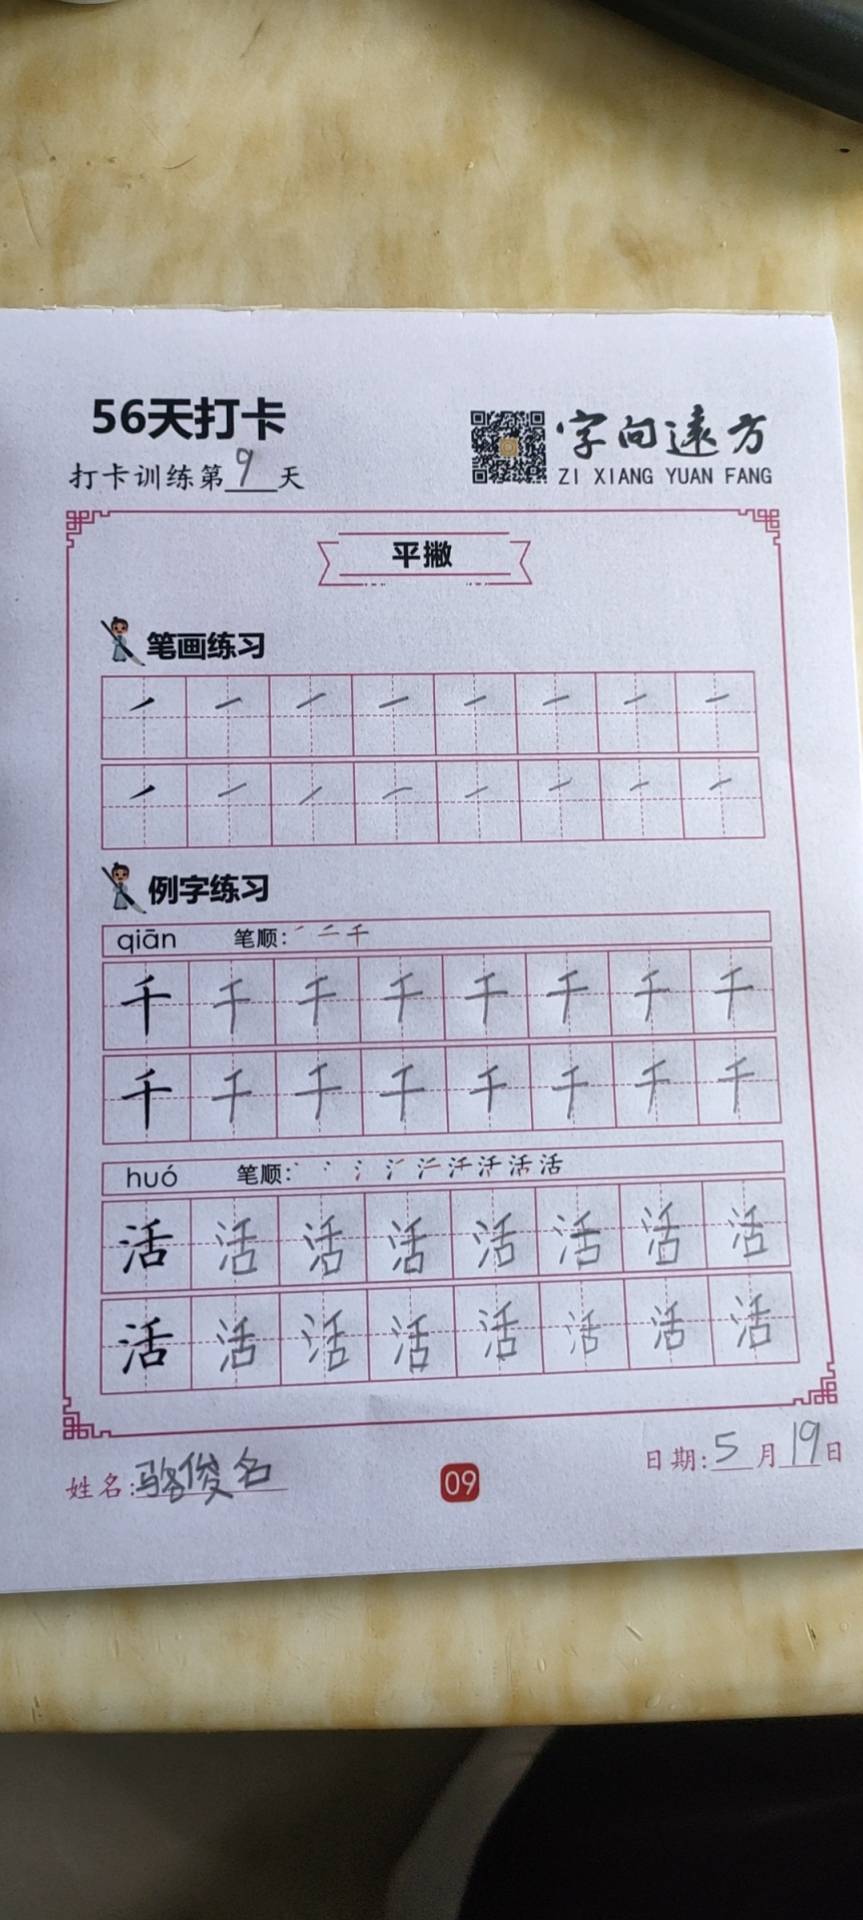 56天打卡
打卡训练第9天
字向遠方
ZI XIANG YUAN FANG
平撇
笔画练习
例字练习
qiān 笔顺: ㇒ 二 千
千 千 千 千 千 千 千 千
千 千 千 千 千 千 千 千
huó 笔顺: 丶 冫 氵 汘 活 活
活 活 活 活 活 活 活 活
活 活 活 活 活 活 活 活
姓名:骆俊名
09
日期:5月19日